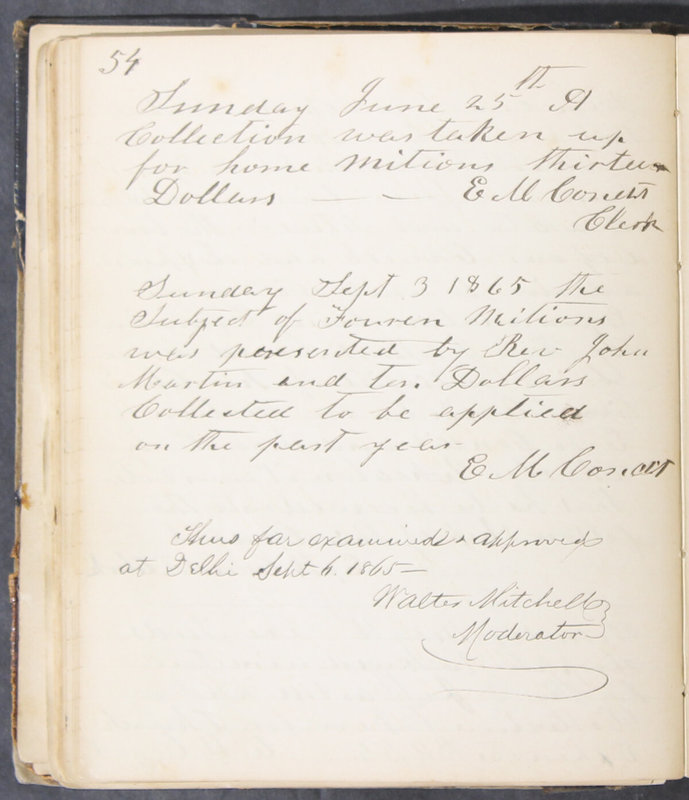 54
Sunday June 25th A
Collection was taken up
for home Mitions thirteen
Dollars — — E M Conett
Clerk
Sunday Sept 3 1865 the
Subject of Fouren Mitions
was presented by Rev John
Martin and ten Dollars
Collected to be applied
on the past year
E M Conett
Thus far examined & approved
at Delhi Sept 6. 1865—
Walter Mitchell
Moderator